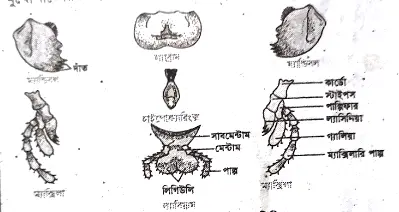 দাঁত
ল্যাব্রাম
ম্যান্ডিবল
কার্ডো
স্টাইপস
পাল্পিফার
ল্যাসিনিয়া
গ্যালিয়া
ম্যাক্সিলারি পাল্প
হাইপোফ্যারিংক্স
সাবমেন্টাম
মেন্টাম
পাল্প
ম্যাক্সিলা
লিগিউলি
ল্যাবিয়াম
ম্যাক্সিলা